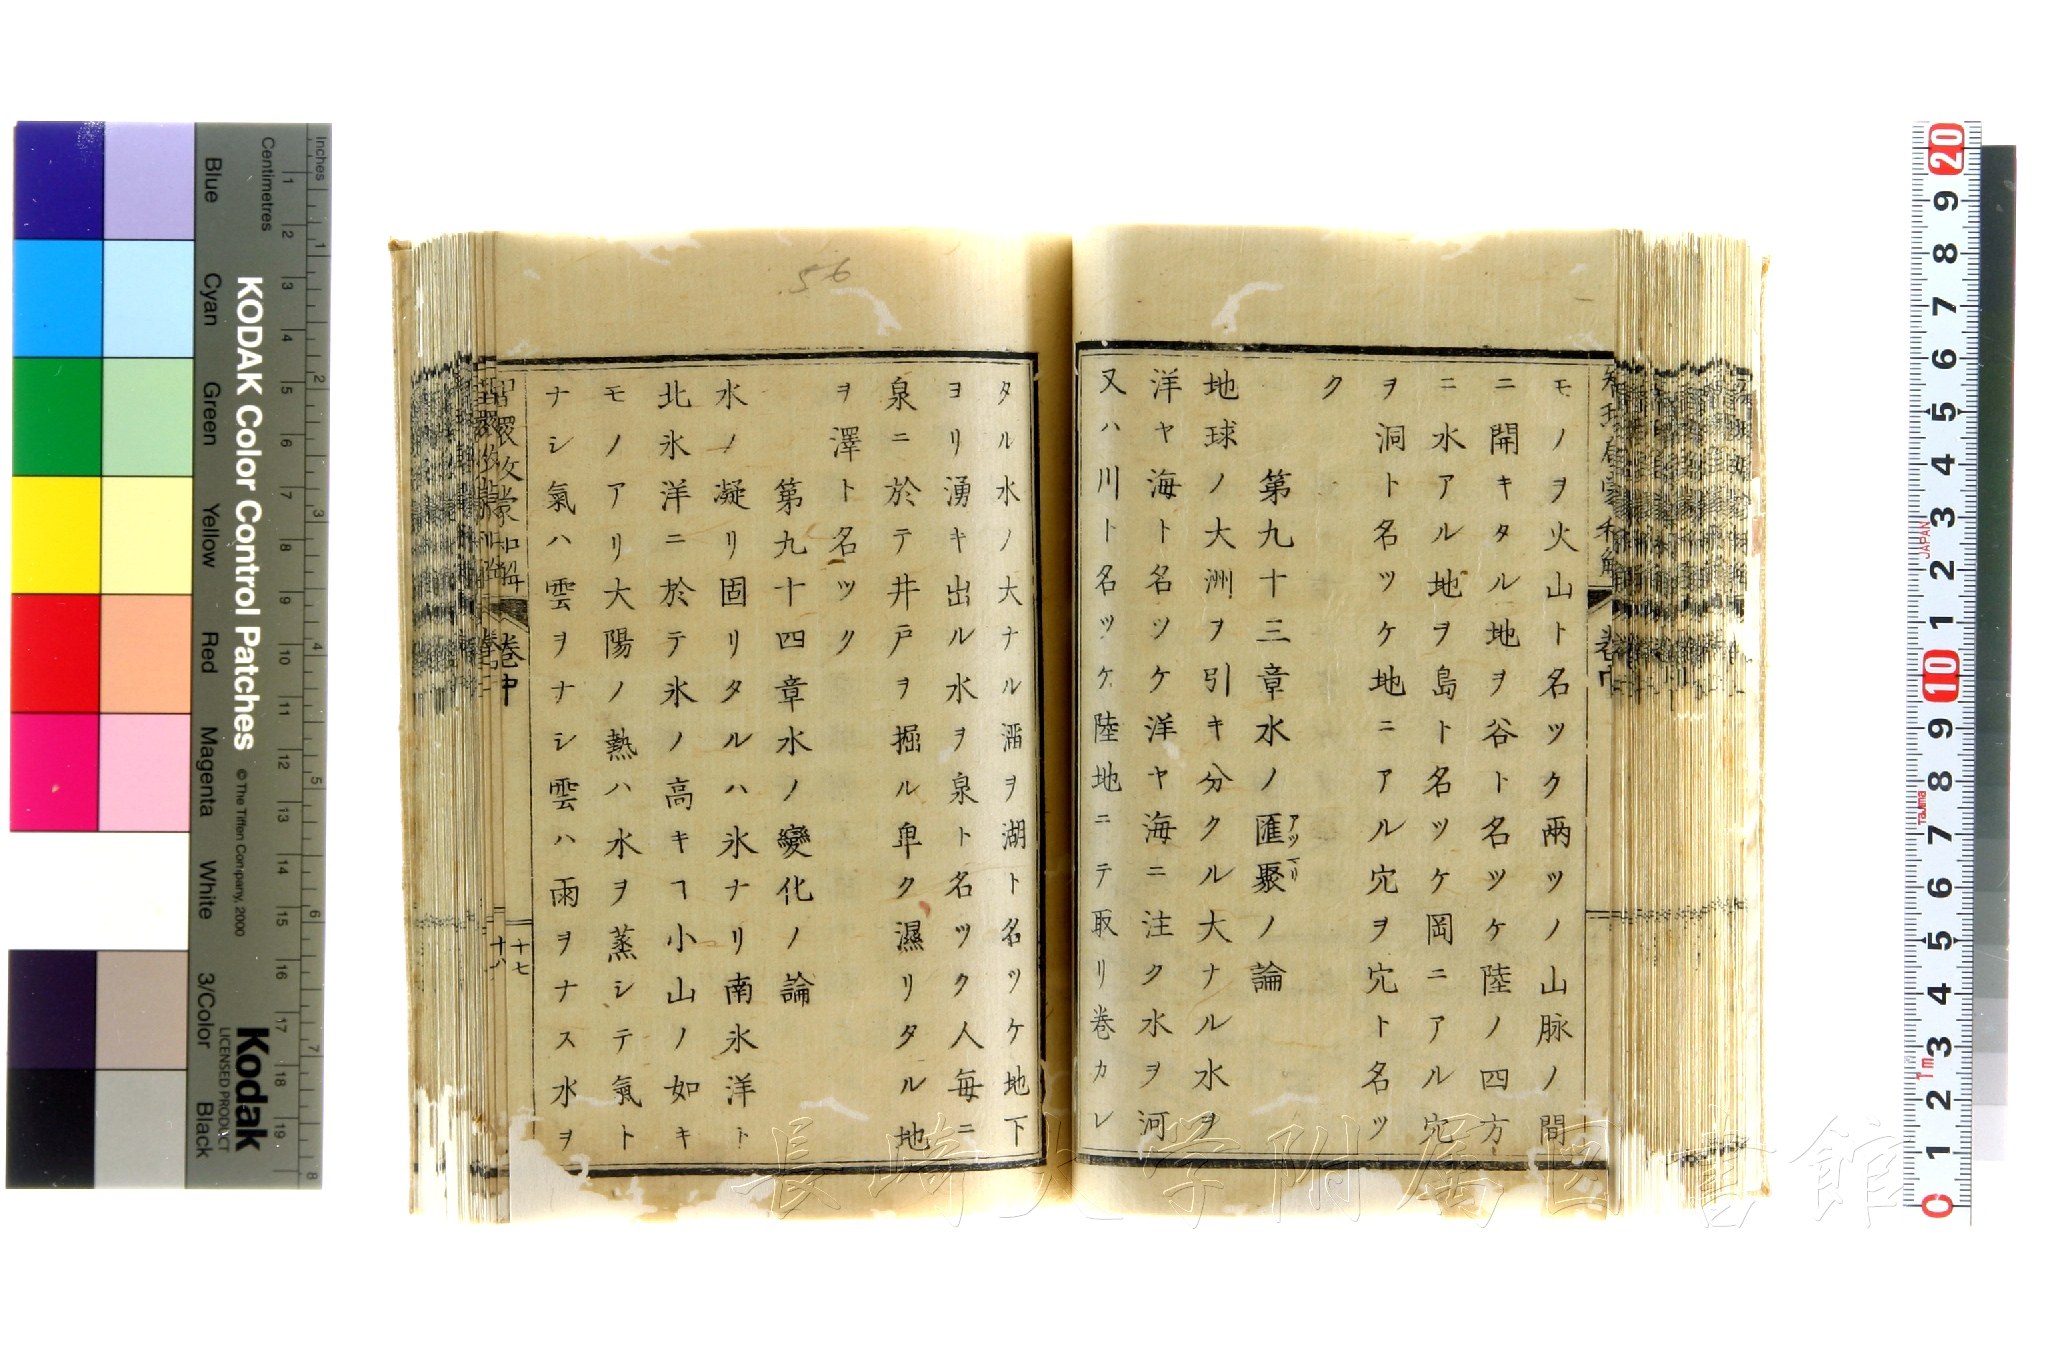 モノヲ火山ト名ツク兩ツノ山脉ノ間
ニ開キタル地ヲ谷ト名ツケ陸ノ四方
ニ水アル地ヲ島ト名ツケ岡ニアル宂
ヲ洞ト名ツケ地ニアル宂ヲ宂ト名ツ
ク
第九十三章水ノ匯聚ノ論
アツマリ
地球ノ大洲ヲ引キ分クル大ナル水ヲ
洋ヤ海ト名ツケ洋ヤ海ニ注ク水ヲ河
又ハ川ト名ツケ陸地ニテ取リ卷カレ
タル水ノ大ナル溜ヲ湖ト名ツケ地下
ヨリ湧キ出ル水ヲ泉ト名ツク人每ニ
泉ニ於テ井戸ヲ掘ル卑ク濕リタル地
ヲ澤ト名ツク
第九十四章水ノ變化ノ論
水ノ凝リ固リタルハ氷ナリ南氷洋ト
北氷洋ニ於テ氷ノ高キヿ小山ノ如キ
モノアリ大陽ノ熱ハ水ヲ蒸シテ氣ト
ナシ氣ハ雲ヲナシ雲ハ雨ヲナス水ヲ
智環啓蒙和解 卷中
十七
十八
56
長崎大学附属図書館
KODAK Color Control Patches
© The Tiffen Company, 2000
Kodak
LICENSED PRODUCT
Inches
Centimetres
Blue
Cyan
Green
Yellow
Red
Magenta
White
3/Color
Black
1 2 3 4 5 6 7 8 9 10 11 12 13 14 15 16 17 18 19
1 2 3 4 5 6 7 8
20 9 8 7 6 5 4 3 2 1 10 9 8 7 6 5 4 3 2 1 0
JAPAN
Tajima
1m